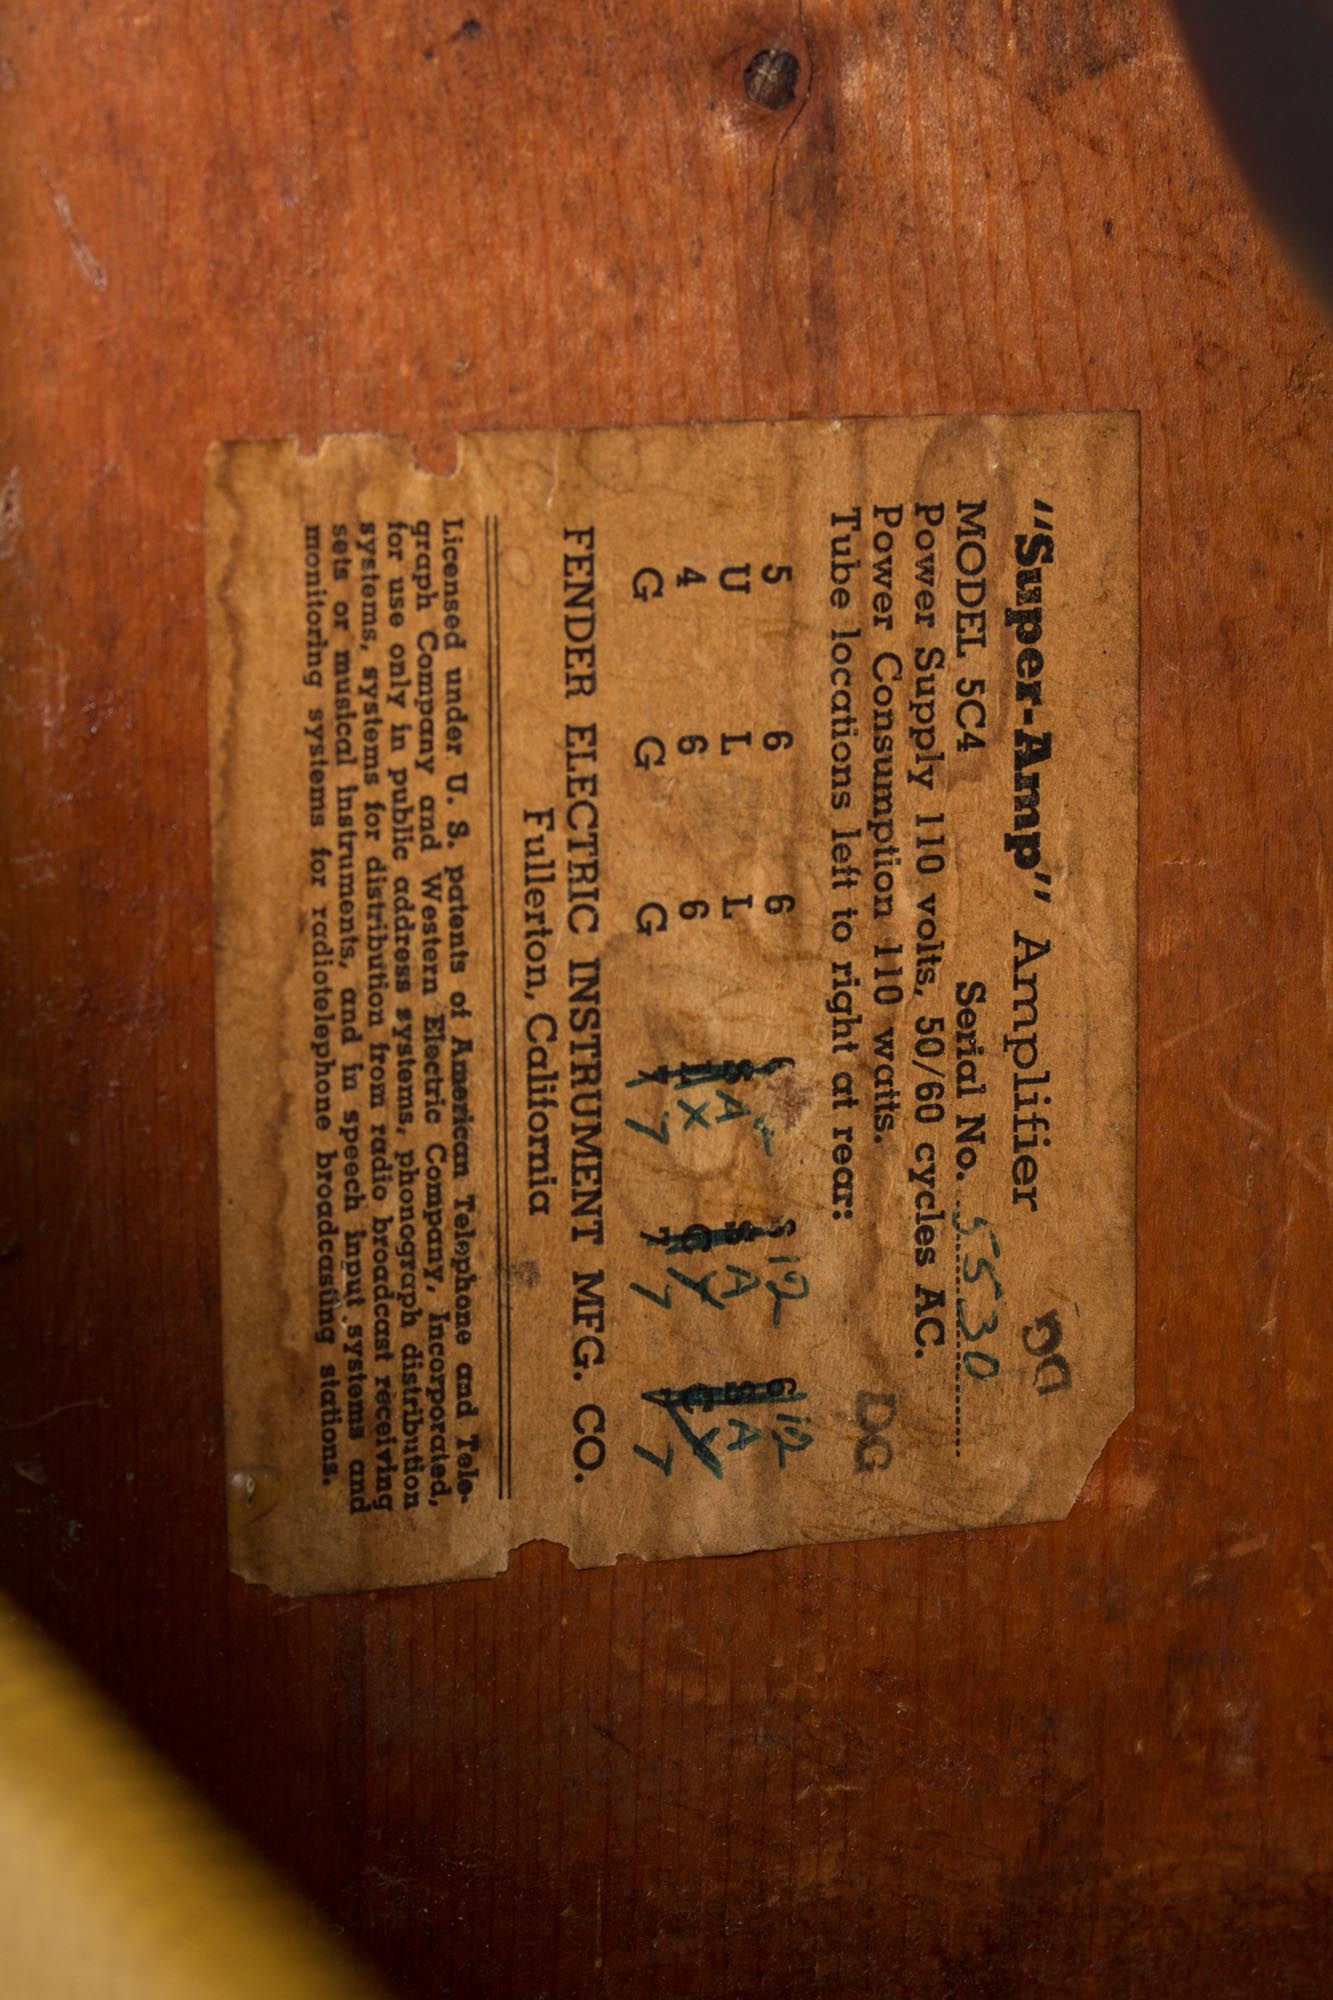 DG
"Super-Amp" Amplifier
MODEL 5C4 Serial No. 5530
Power Supply 110 volts, 50/60 cycles AC.
Power Consumption 110 watts. DG
Tube locations left to right at rear:
5 6 6 6 12 6 12
U L L A A A
4 6 6 X Y Y
G G G 7 7 7
FENDER ELECTRIC INSTRUMENT MFG. CO.
Fullerton, California
Licensed under U. S. patents of American Telephone and Tele-
graph Company and Western Electric Company, Incorporated,
for use only in public address systems, phonograph distribution
systems, systems for distribution from radio broadcast receiving
sets or musical instruments, and in speech input systems and
monitoring systems for radiotelephone broadcasting stations.